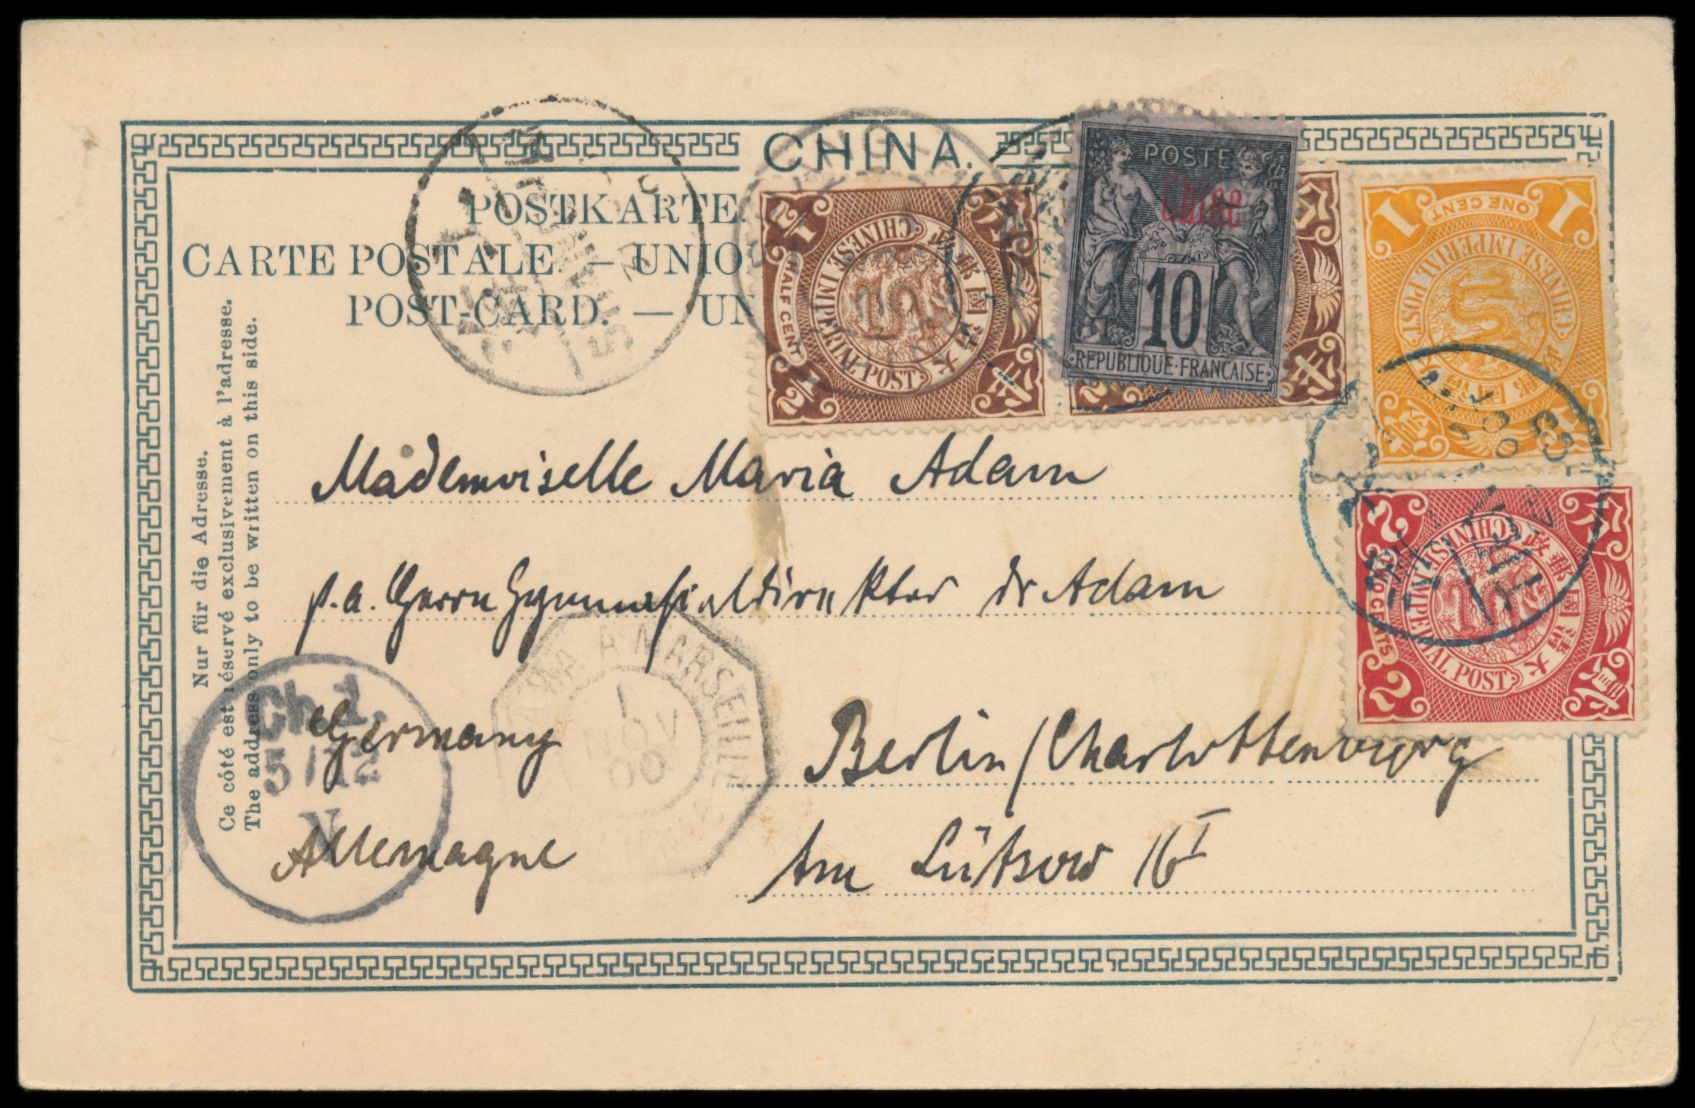 CHINA.
POSTKARTE
CARTE POSTALE. — UNIO
POST-CARD. — UN
Nur für die Adresse.
Ce côté est réservé exclusivement à l'adresse.
The address only to be written on this side.
1/2
HALF CENT
CHINESE IMPERIAL POST
大清國郵政
1/2
POSTE
Chine
10
REPUBLIQUE·FRANÇAISE
1
ONE CENT
CHINESE IMPERIAL POST
2
TWO CENTS
CHINESE IMPERIAL POST
大清國郵政
2
Mademoiselle Maria Adam
p.a. Herrn Gymnasialdirektor Dr Adam
Germany
Berlin/Charlottenburg
Allemagne
Am Lützow 16 I
MARSEILLE
1
NOV
00
Ch. 1.
5/12
N
SHANGHAI